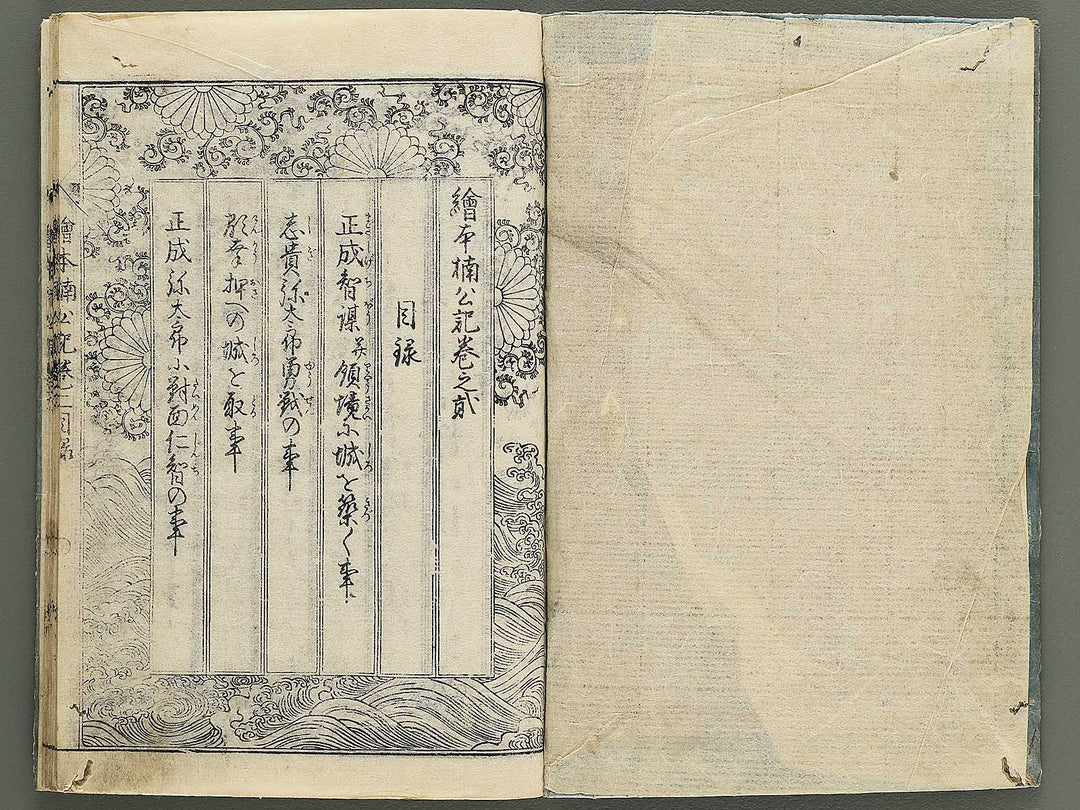 繪本楠公記巻之貳
目録
正成智謀并領境尓城を築く事
志貴弥太郎勇戦の事
押への城を取事
正成弥太郎尓對面仁智の事
繪本楠公記巻之二目録